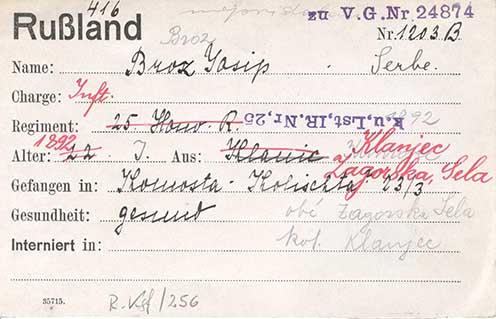 416
Rußland
zu V.G.Nr 24874
Broz
Nr. 1203 B
Name: Broz Josip Serbe.
Charge: Inft.
k.u.Lst.IR.Nr.25 1892
Regiment: 25 Honv. R.
Klanjec
Alter: 1892 22 J. Aus: Klanic Zagorska, Sela
Gefangen in: Komosta - Kolischta 23/3
Gesundheit: gesund
obć Zagorska Sela
Interniert in: kot. Klanjec
35715.
R. Kgf/256